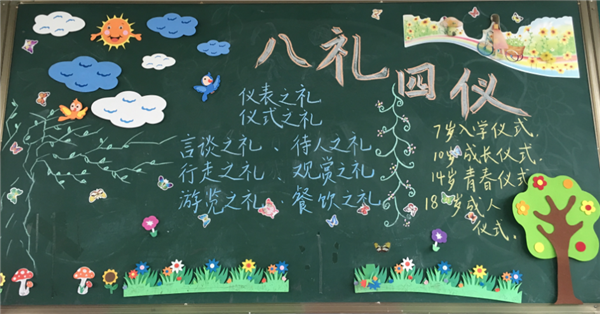 八礼四仪
仪表之礼
仪式之礼
言谈之礼、待人之礼
行走之礼、观赏之礼
游览之礼·餐饮之礼
7岁入学仪式.
10岁成长仪式.
14岁青春仪式
18岁成人
仪式.